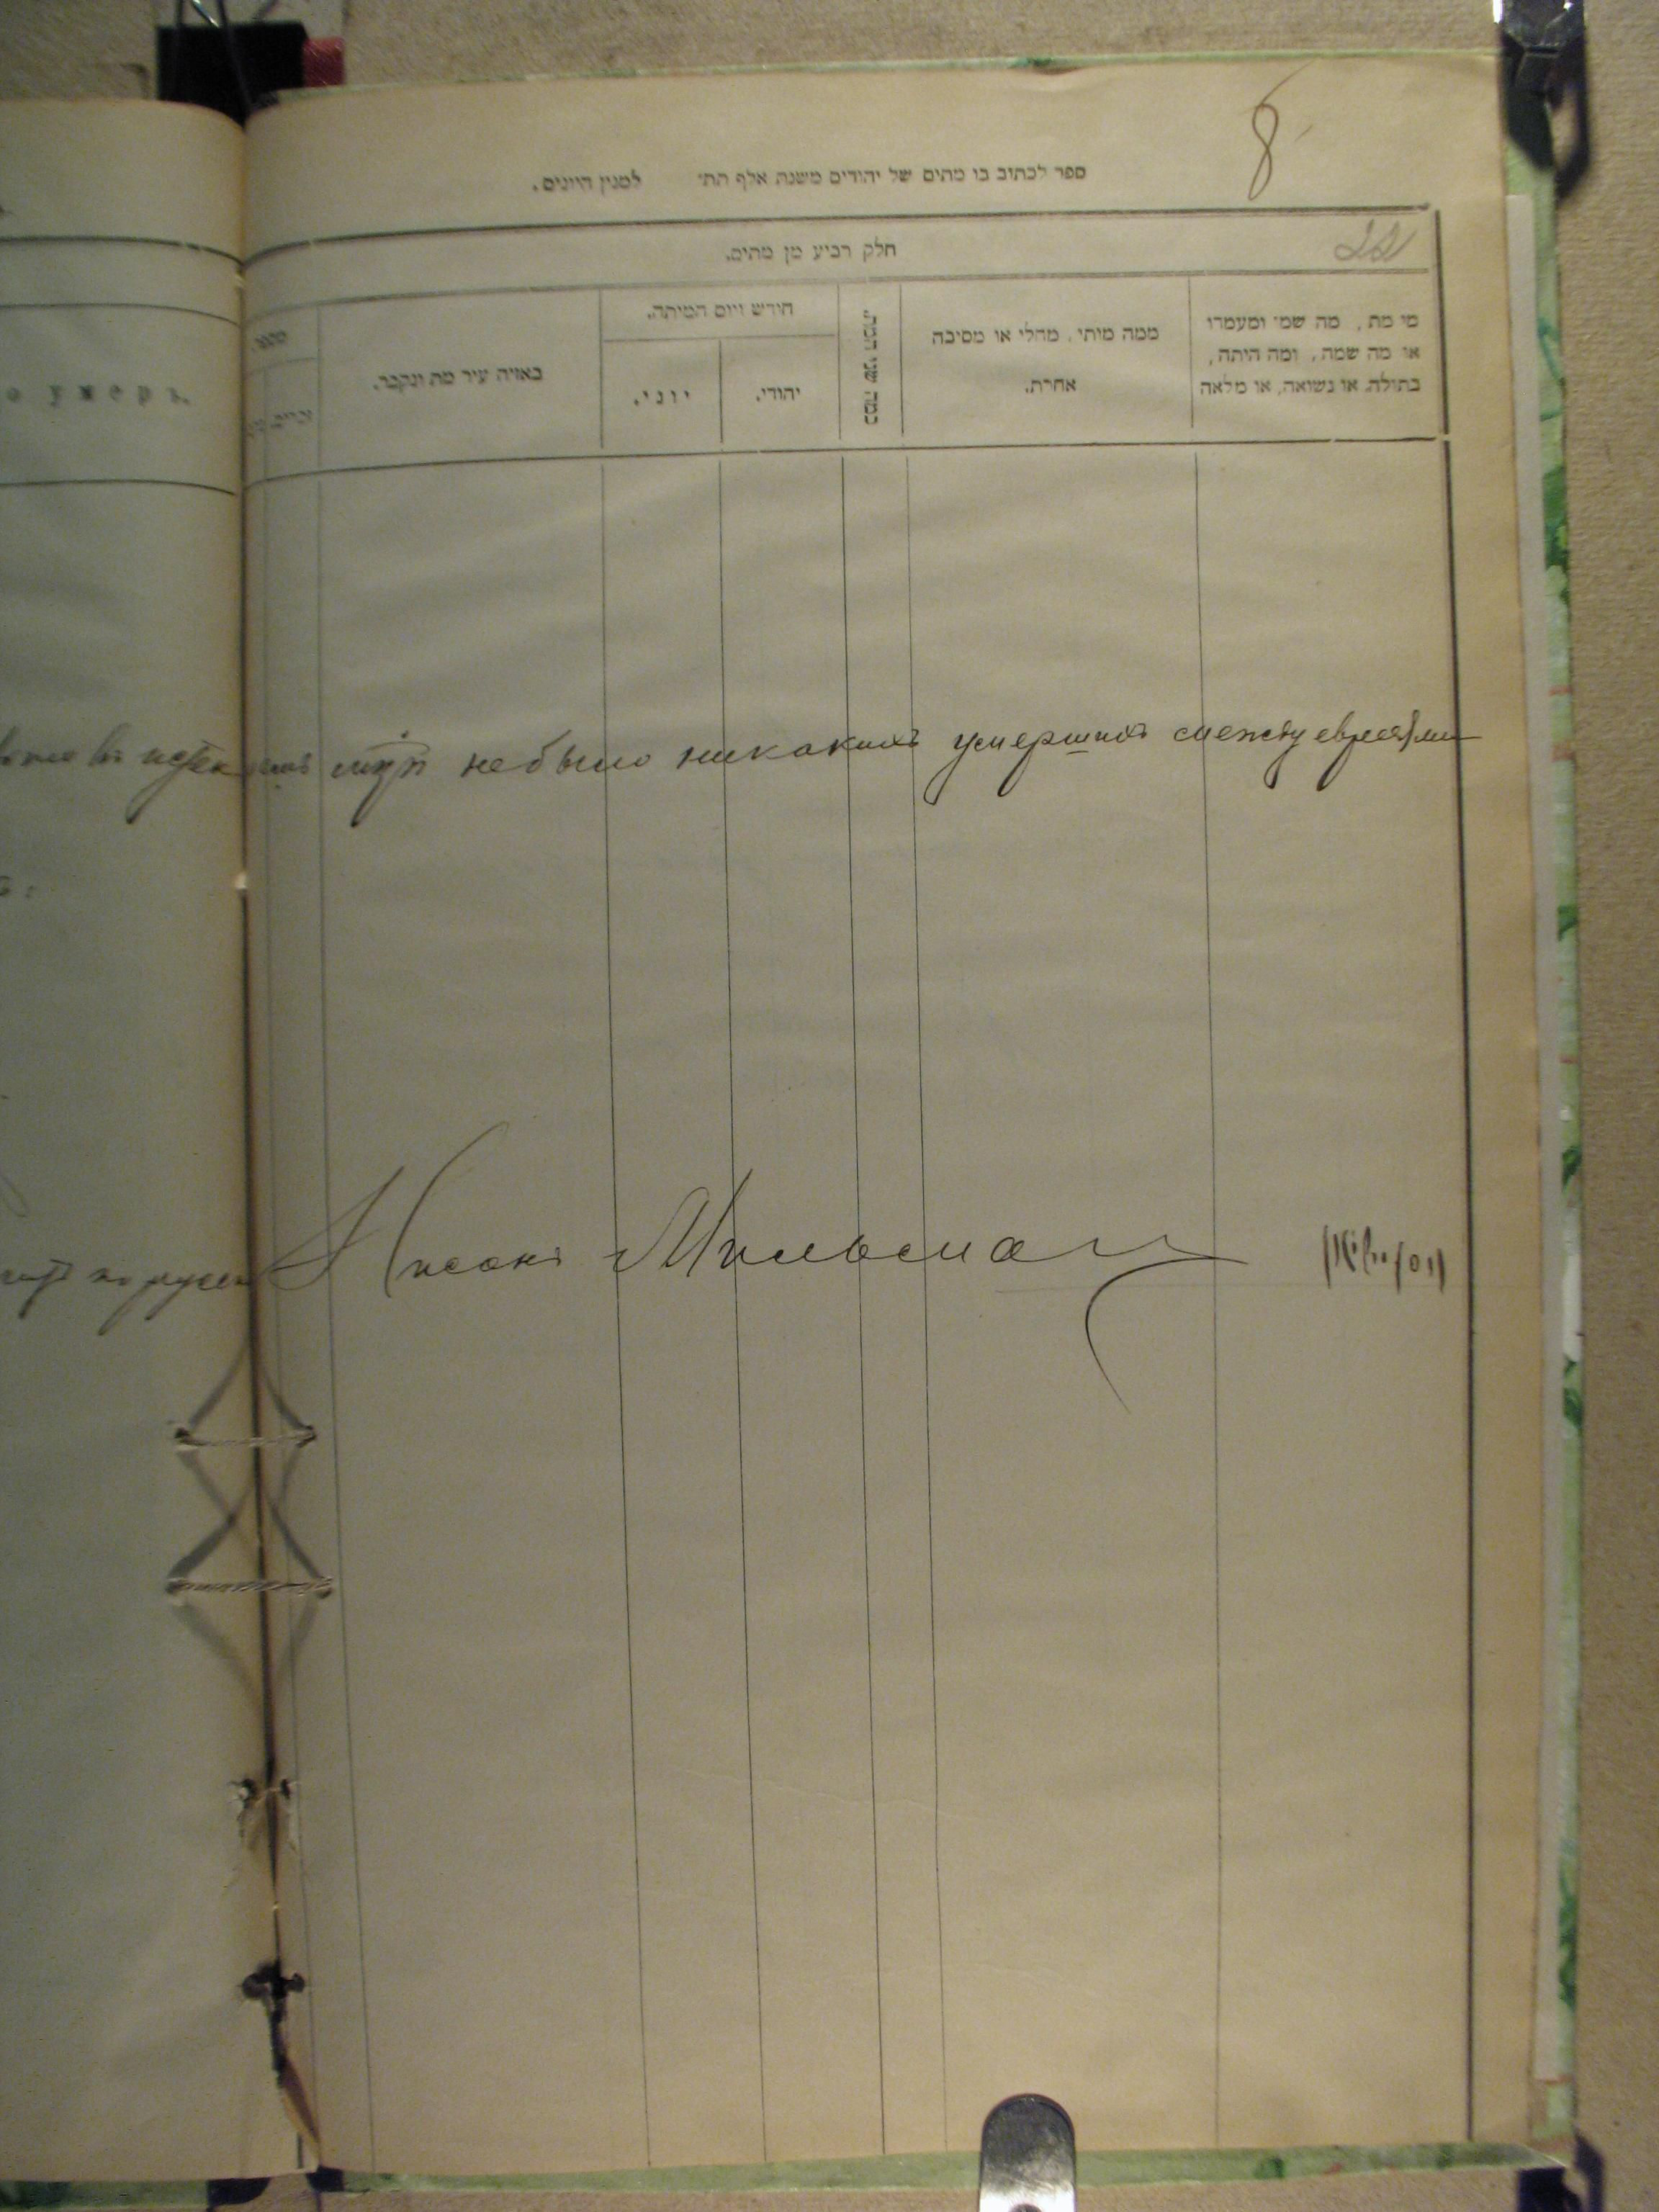 8
ספר לכתוב בו מתים של יהודים משנת אלף תת׳ למנין היונים.
חלק רביע מן מתים.
מי מת, מה שמ׳ ומעמדו
או מה שמה, ומה היתה,
בתולה. או נשואה, או מלאה
ממה מותי, מחלי או מסיבה
אחרת.
כמה שני המת.
חודש ויום המיתה.
יהודי.
יוני.
באזיה עיר מת ונקבר.
מספר
о умеръ.
небыло никакихъ умершихъ между евреями
Нисонъ Мильман